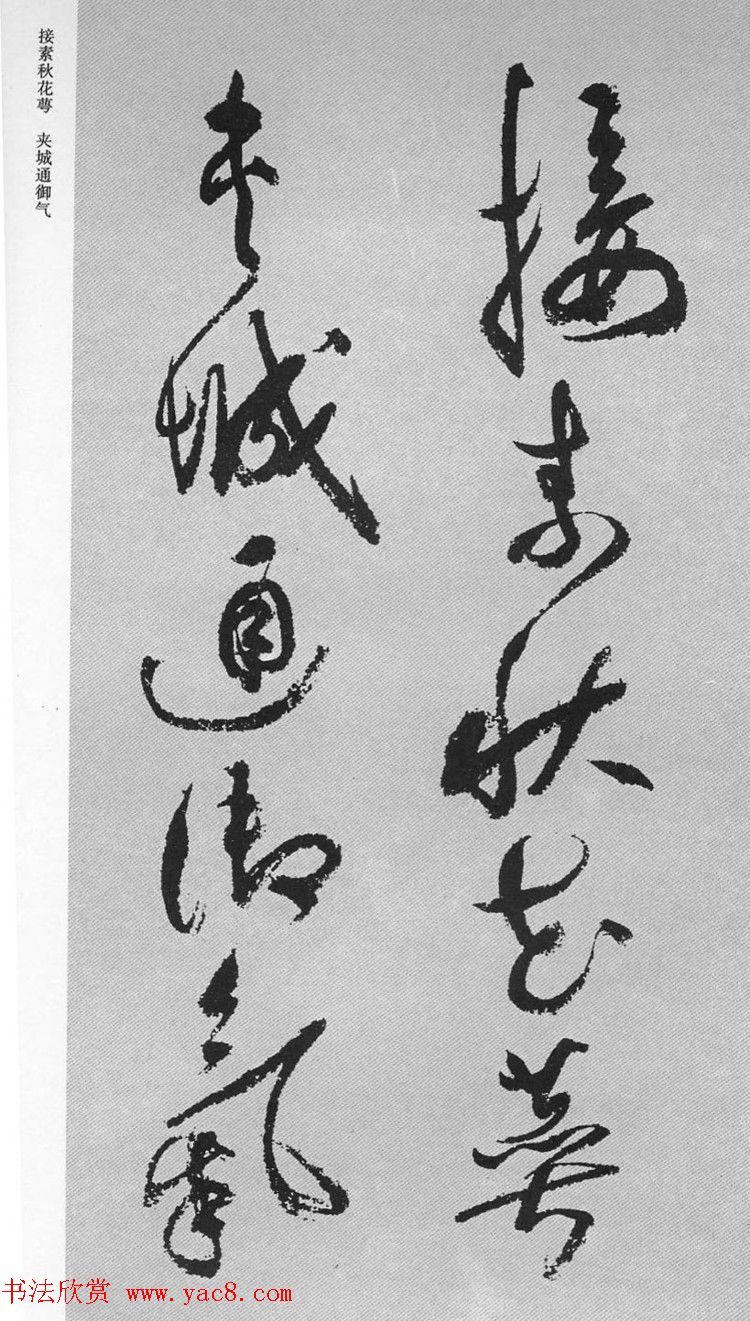 接素秋花萼
夹城通御气
接素秋花萼 夹城通御气
书法欣赏 www.yac8.com